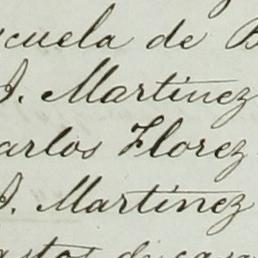 scuela de B
J. Martinez
arlos Florez
J. Martinez
astos de casa